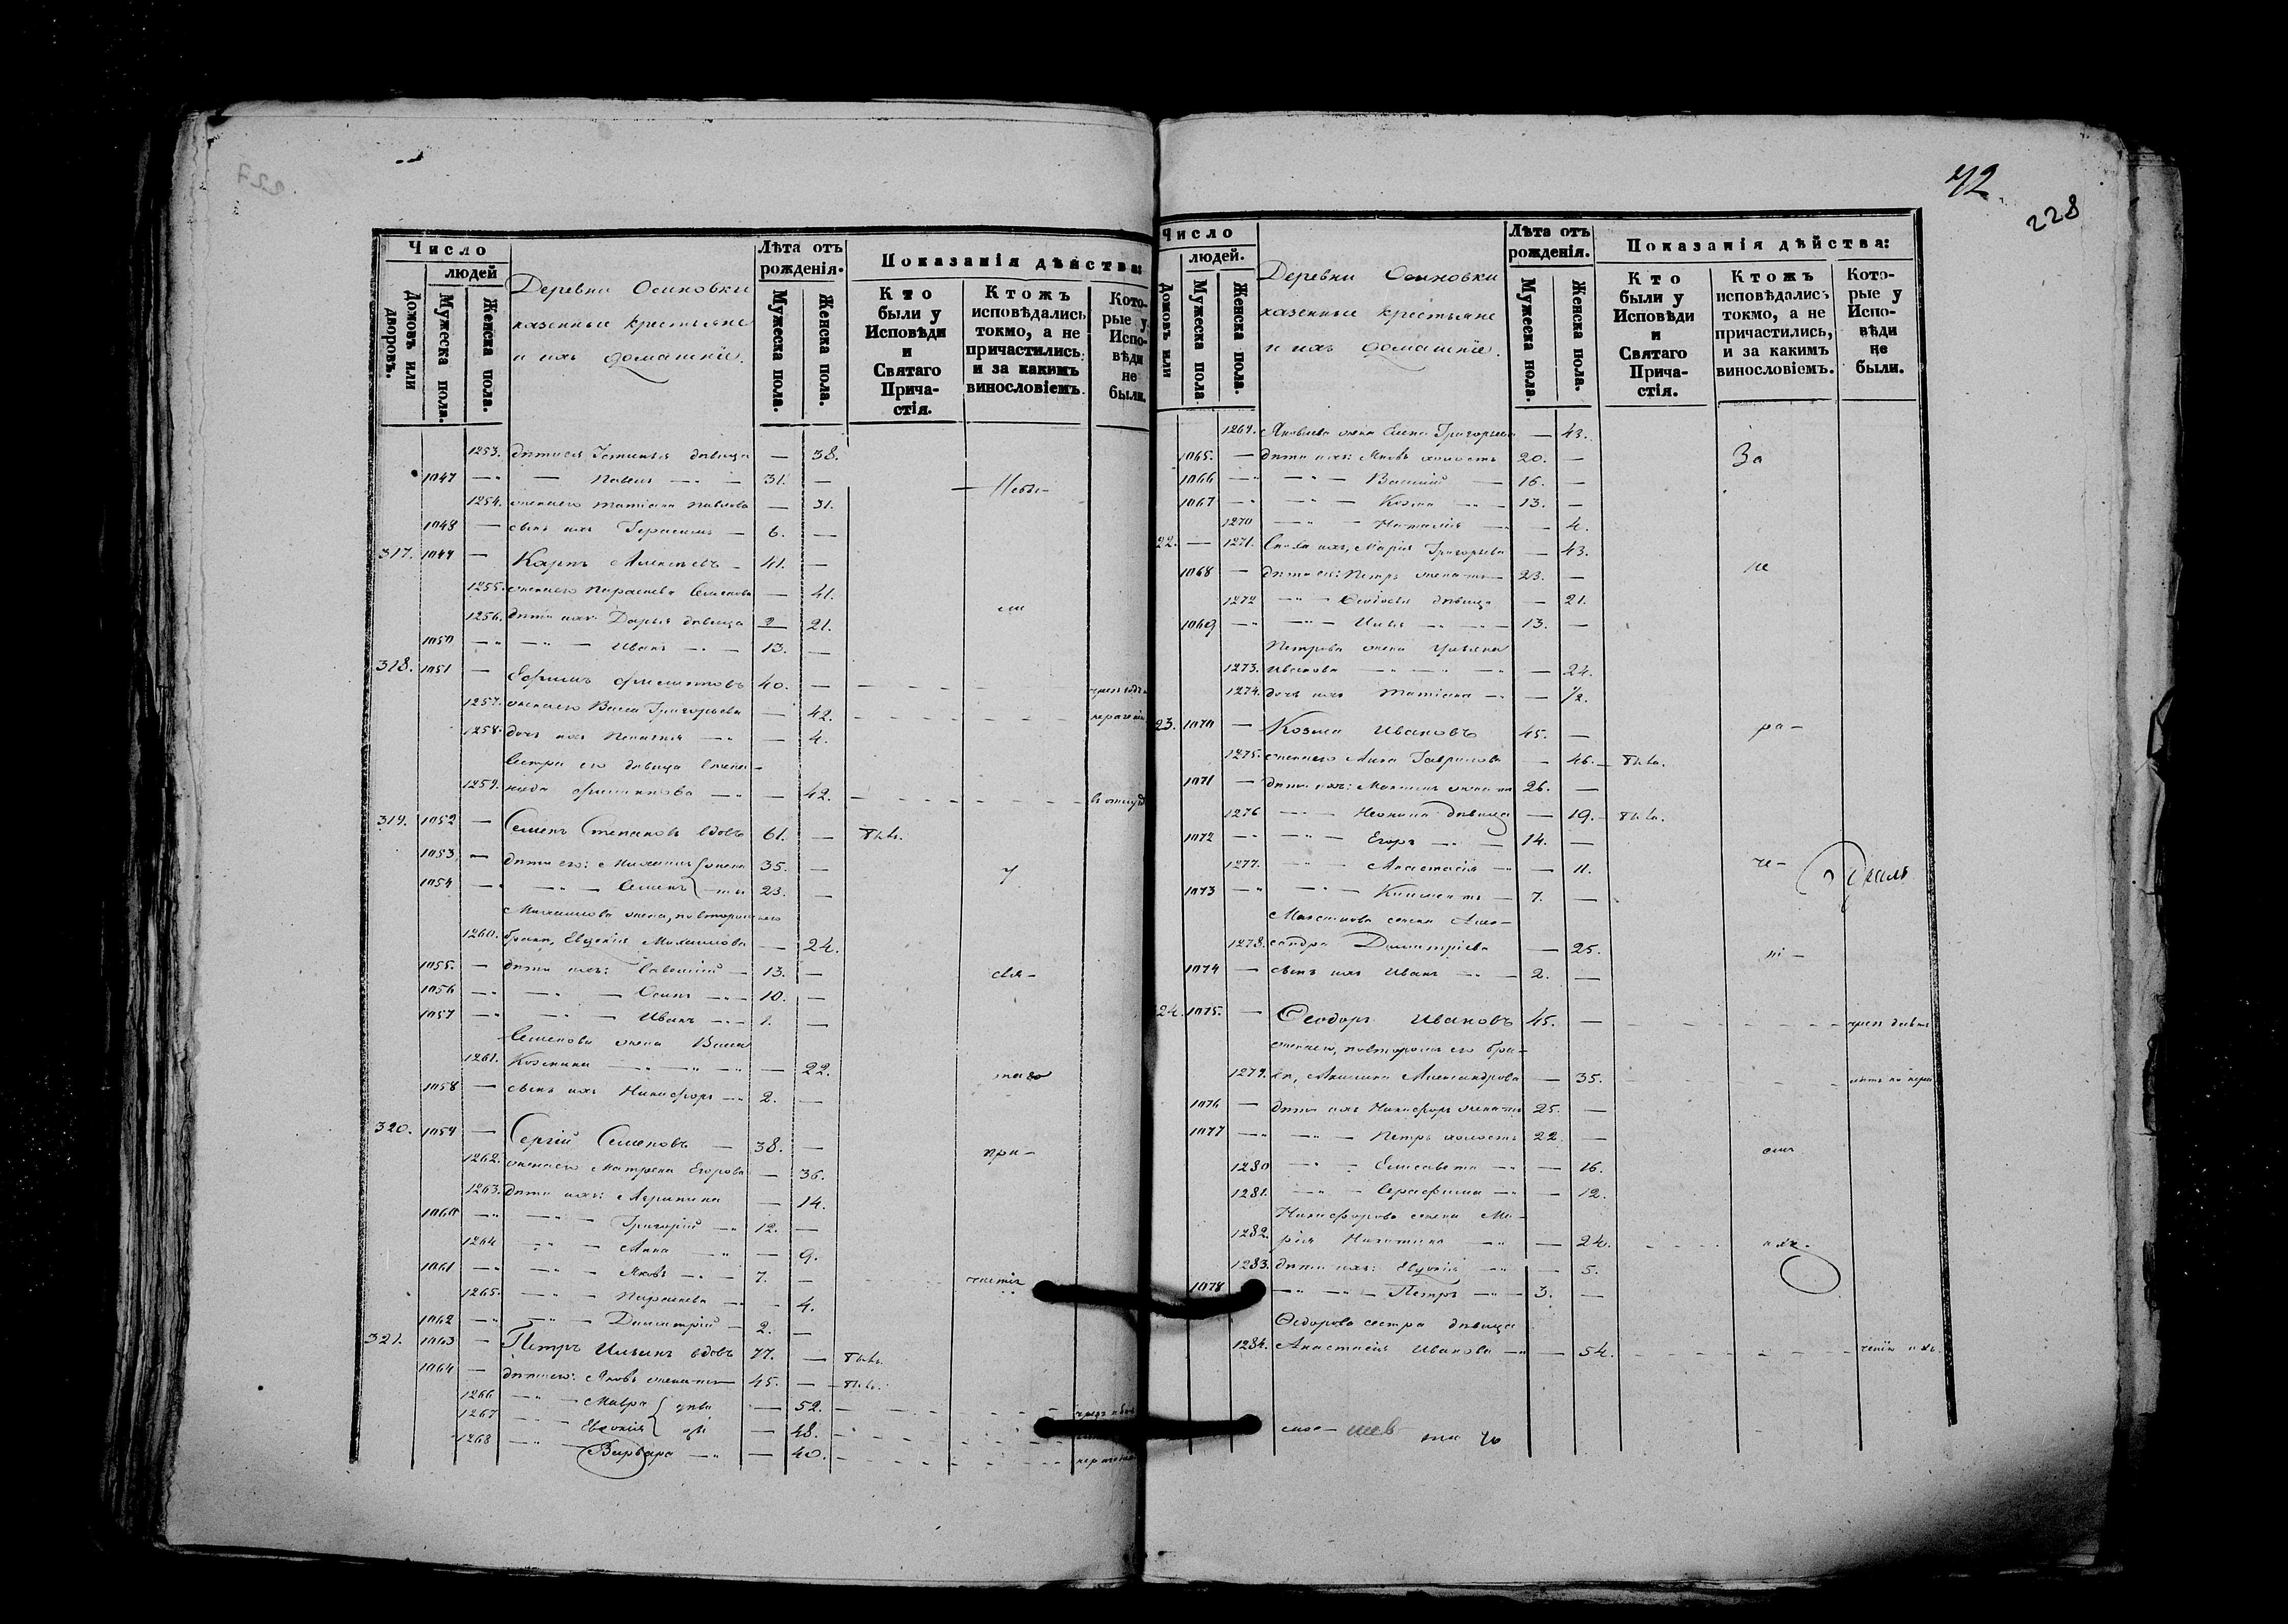 42
228
227
Число
людей
Домовъ или дворовъ.
Мужеска пола.
Женска пола.
Деревни Осиновки
казенные крестьяне
и ихъ домашніе.
Лѣта отъ рожденія.
Мужеска пола.
Женска пола.
Показанія дѣйства:
Кто были у Исповѣди и Святаго Прича-стія.
Ктожъ исповѣдались токмо, а не причастились, и за какимъ винословіемъ.
Кото-рые у Испо-вѣди не были.
1253. дѣти ея Устинья дѣвица — 38.
1047 — Павелъ — 31. —
1254. жена его Татіана Павлова — 31.
1048 — сынъ ихъ Герасимъ — 6. —
317. 1049 — Карпъ Алексѣевъ — 41. —
1255. жена его Параскева Семенова — 41.
1256. дѣти ихъ: Дарья дѣвица — 21.
1050 — Иванъ — 13. —
318. 1051 — Ефимъ Филиповъ 40. —
1257. жена его Васса Григорьева — 42.
1258. дочь ихъ Пелагея — 4.
Сестра его дѣвица Степа-
1259. нида Филипова — 42.
319. 1052 — Семенъ Степановъ вдовъ 61. — Были.
1053 — дѣти его: Михаилъ жена 35. —
1054 — Семенъ ты 23. —
Михаилова жена, повторому его
1260. браку, Евдокія Михаилова — 24.
1055. — дѣти ихъ: Савелій — 13. — свя-
1056 — Осипъ — 10. —
1057 — Иванъ — 1. —
Семенова жена Васса
1261. Козмина — 22. таго
1058 — сынъ ихъ Никифоръ — 2. —
320. 1059 — Сергій Семеновъ — 38. —
1262. жена его Матрена Егорова — 36. при-
1263. дѣти ихъ: Агрипина — 14.
1060 — Григорій — 12. —
1264 — Анна — 9.
1061 — Яковъ — 7. — частія
1265. — Параскева — 4.
1062 — Димитрій — 2. —
321. 1063 — Петръ Ильинъ вдовъ 77. — Были.
1064 — дѣти его: Яковъ женатъ 45. — Были.
1266 — Мавра — 52.
1267 — Евдокія — 48.
1268 — Варвара — 40.
Число
людей.
Домовъ или
Мужеска пола
Женска пола.
Деревни Осиновки
казенные крестьяне
и ихъ домашніе.
Лѣта отъ рожденія.
Мужеска пола.
Женска пола.
Показанія дѣйства:
Кто были у Исповѣди и Святаго Прича-стія.
Ктожъ исповѣдались токмо, а не причастились, и за какимъ винословіемъ.
Кото-рые у Испо-вѣди не были.
1269. Яковлева жена Елена Григорьева — 43.
1065. — дѣти ихъ: Яковъ холостъ 20. — За
1066 — Василій — 16. —
1067 — Козма — 13. —
1270 — Наталія — 4.
22. — 1271. Сноха ихъ, Марія Григорьева — 43.
1068 — дѣти ея: Петръ женатъ 23. — не
1272 — Феодосія дѣвица — 21.
1069 — Илья — 13. —
Петрова жена Ульяна
1273. Иванова — 24.
1274. дочь ихъ Татіана — 1/2.
23. 1070 — Козма Ивановъ 45. — ра-
1275. жена его Анна Гаврилова — 46. — Была.
1071 — дѣти ихъ: Максимъ женатъ 26. —
1276 — Неонила дѣвица — 19. — Была.
1072 — Егоръ — 14. —
1277. — Анастасія — 11.
1073 — Климентъ — 7. —
Максимова жена Алек-
1278. сандра Димитріева — 25. ні-
1074 — сынъ ихъ Иванъ — 2. —
24. 1075. — Феодоръ Ивановъ 45. —
жена его, повторому его бра-
1279. ку, Акилина Александрова — 35.
1076 — дѣти ихъ Никифоръ женатъ 25. —
1077 — Петръ холостъ 22 —
1280 — Елисавета — 16.
1281. — Серафима — 12.
Никифорова жена Ма-
1282. рія Никитина — 24. ихъ.
1283. дѣти ихъ: Евдокія — 5.
1078 — Петръ — 3. —
Федорова сестра дѣвица
1284. Анастасія Иванова — 54.